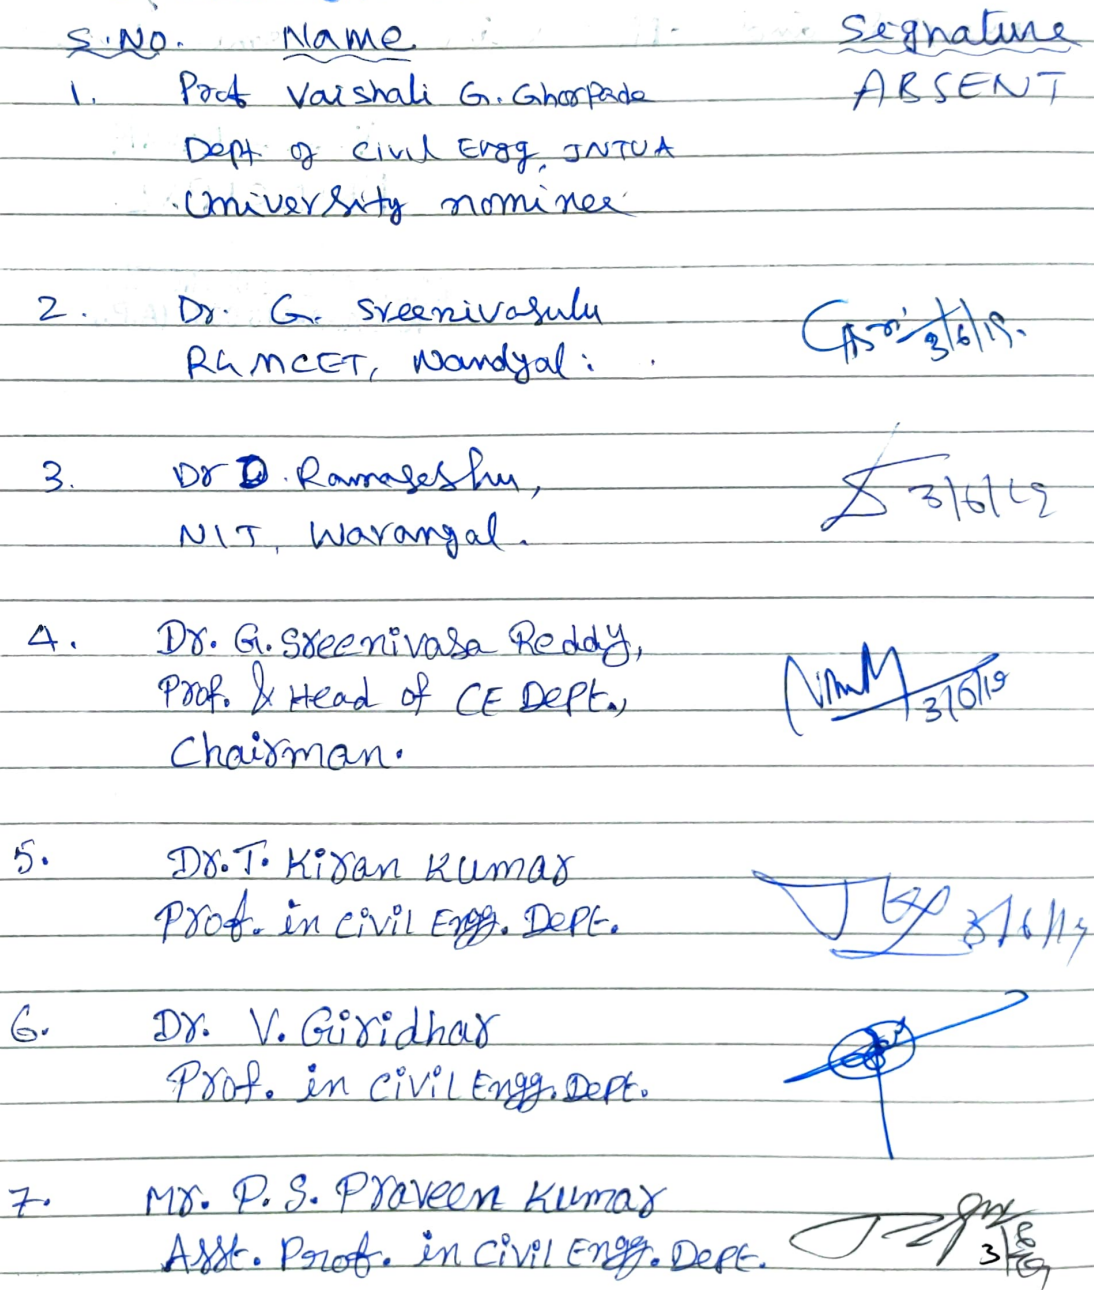 S.No. Name Segnature
1. Prof Vaishali G. Ghorpade ABSENT
Dept of Civil Engg, JNTUA
University nominee
2. Dr. G. Sreenivasulu 3/6/19.
RGMCET, Nandyal:
3. Dr D. Ramaseshu, 3/6/19
NIT, Warangal.
4. Dr. G. Sreenivasa Reddy,
Prof. & Head of CE Dept., 3/6/19
Chairman.
5. Dr. T. Kiran Kumar
Prof. in Civil Engg. Dept. 3/6/19
6. Dr. V. Giridhar
Prof. in Civil Engg. Dept.
7. Mr. P. S. Praveen Kumar
Asst. Prof. in Civil Engg. Dept.